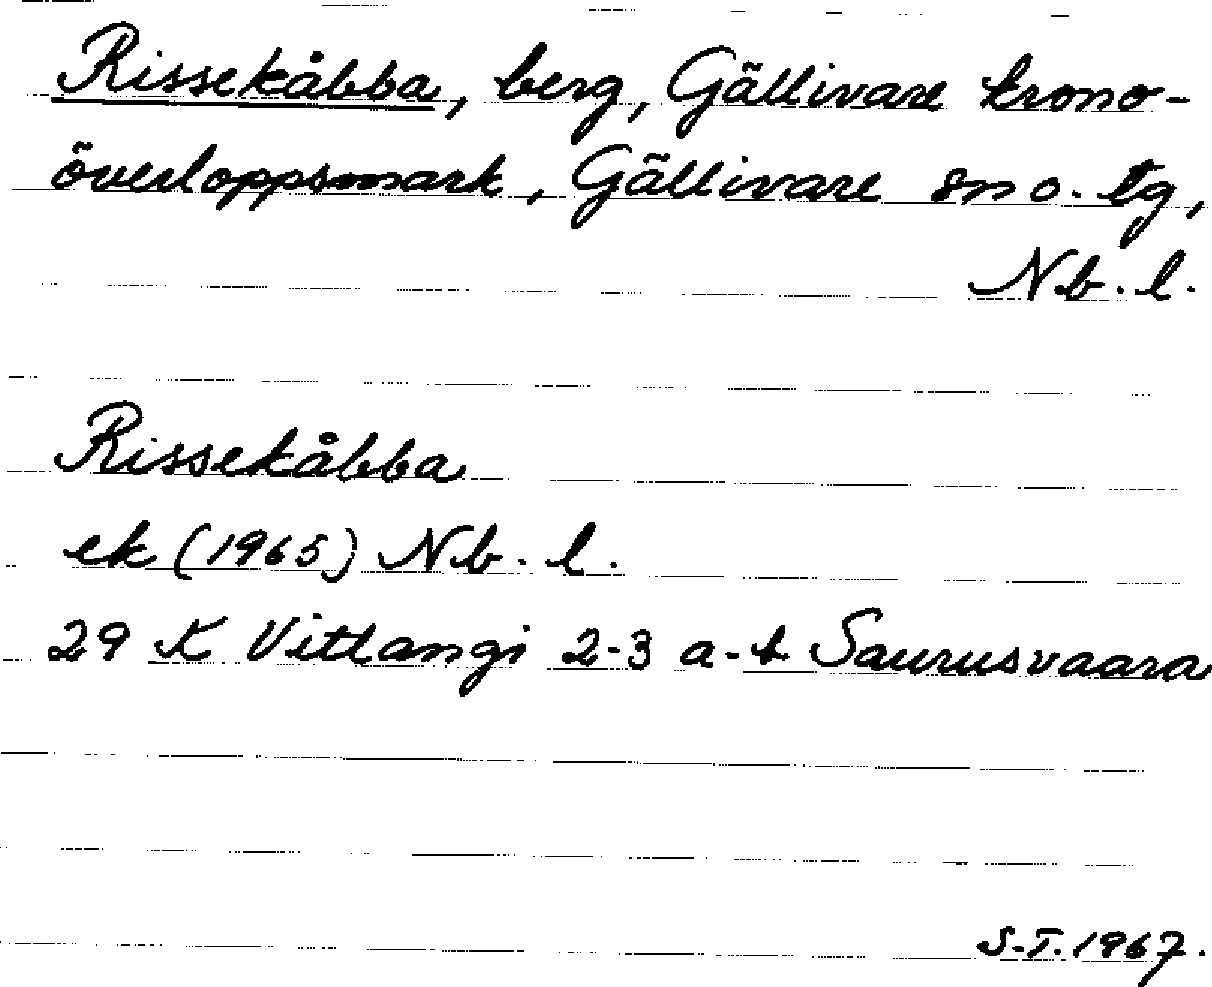 Rissekåbba, berg, Gällivare krono-
överloppsmark, Gällivare sn o. tg,
Nb. l.
Rissekåbba
ek (1965) Nb. l.
29 K Vittangi 2-3 a-b Saurusvaara
S-T. 1967.